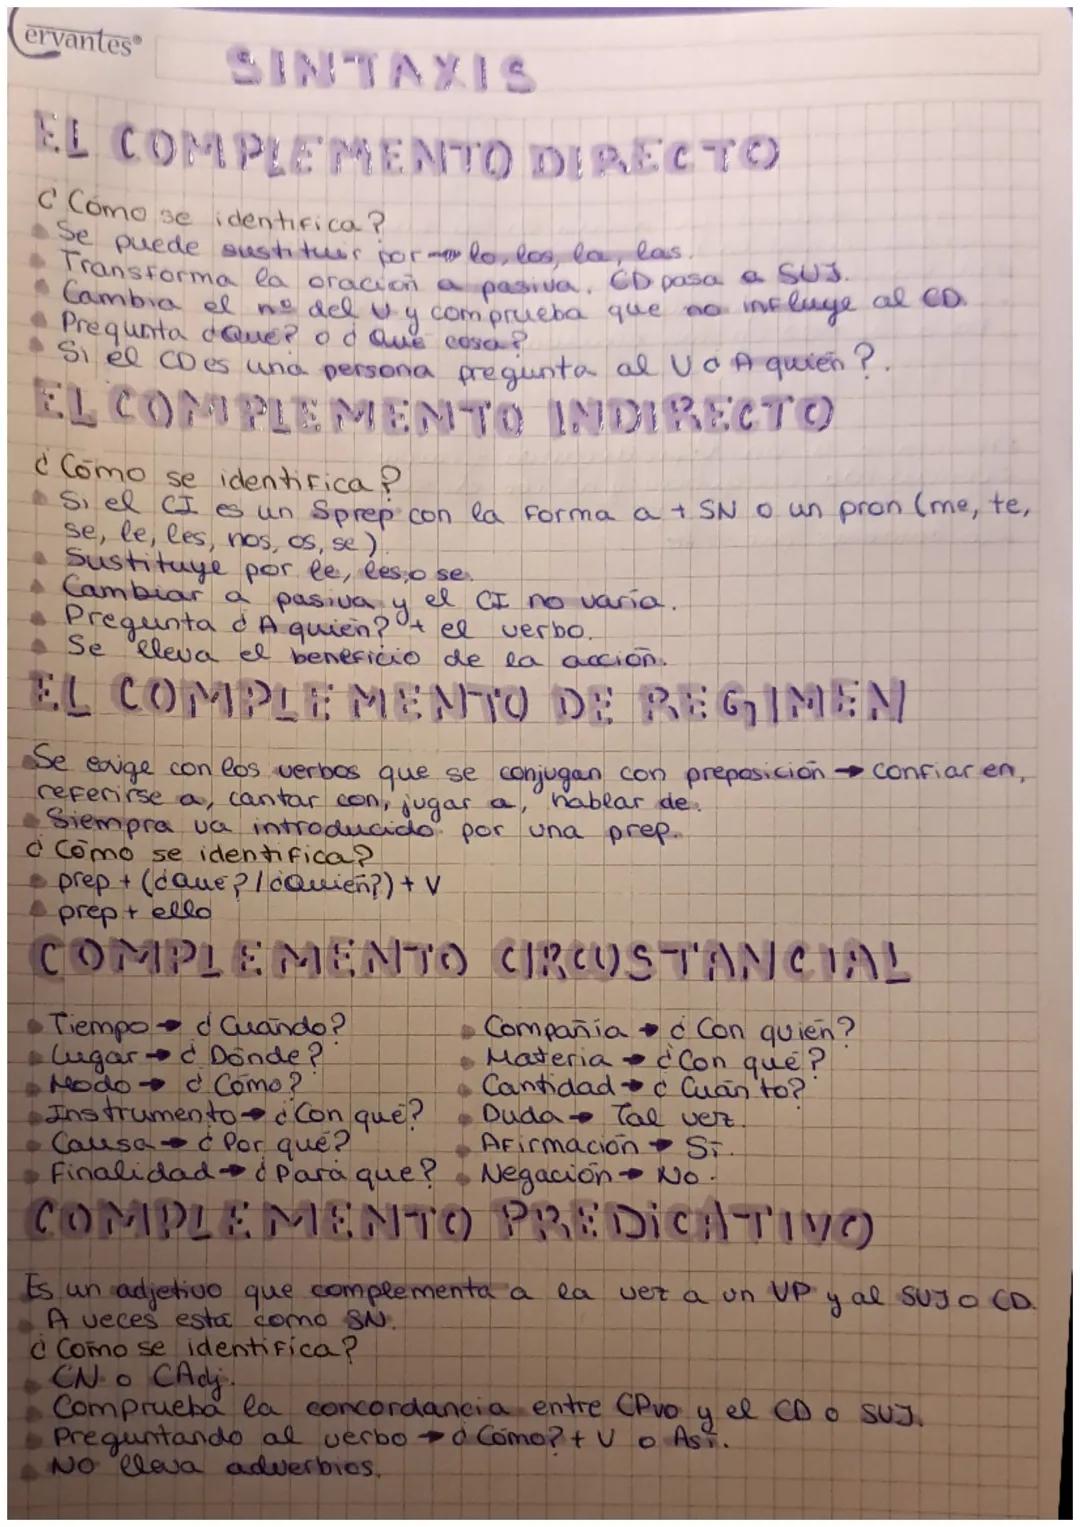 Cervantes®
SINTAXIS
EL COMPLEMENTO DIRECTO
¿Cómo se identifica?
Se puede sustituir por → lo, los, la, las.
Transforma la oración a pasiva. CD pasa a SUJ.
Cambia el nº del V y comprueba que no influye al CD.
Pregunta ¿Qué? o ¿Qué cosa?
Si el CD es una persona pregunta al V ¿A quién?.
EL COMPLEMENTO INDIRECTO
¿Cómo se identifica?
Si el CI es un Sprep con la forma a + SN o un pron (me, te,
se, le, les, nos, os, se).
Sustituye por le, les, o se.
Cambiar a pasiva y el CI no varía.
Pregunta ¿A quién? + el verbo.
Se lleva el beneficio de la acción.
EL COMPLEMENTO DE REGIMEN
Se exige con los verbos que se conjugan con preposición → confiar en,
referirse a, cantar con, jugar a, hablar de.
Siempra va introducido por una prep.
¿Cómo se identifica?
prep + (¿Qué?/¿Quién?) + V
prep + ello
COMPLEMENTO CIRCUSTANCIAL
Tiempo → ¿Cuándo?
Lugar → ¿Dónde?
Modo → ¿Cómo?
Instrumento → ¿Con qué?
Causa → ¿Por qué?
Finalidad → ¿Para que?
Compañía → ¿Con quién?
Materia → ¿Con qué?
Cantidad → ¿Cuánto?
Duda → Tal vez.
Afirmación → Sí.
Negación → No.
COMPLEMENTO PREDICATIVO
Es un adjetivo que complementa a la vez a un VP y al SUJ o CD.
A veces está como SN.
¿Cómo se identifica?
CN o CAdj.
Comprueba la concordancia entre CPvo y el CD o SUJ.
Preguntando al verbo → ¿Cómo? + V o Así.
No lleva adverbios.